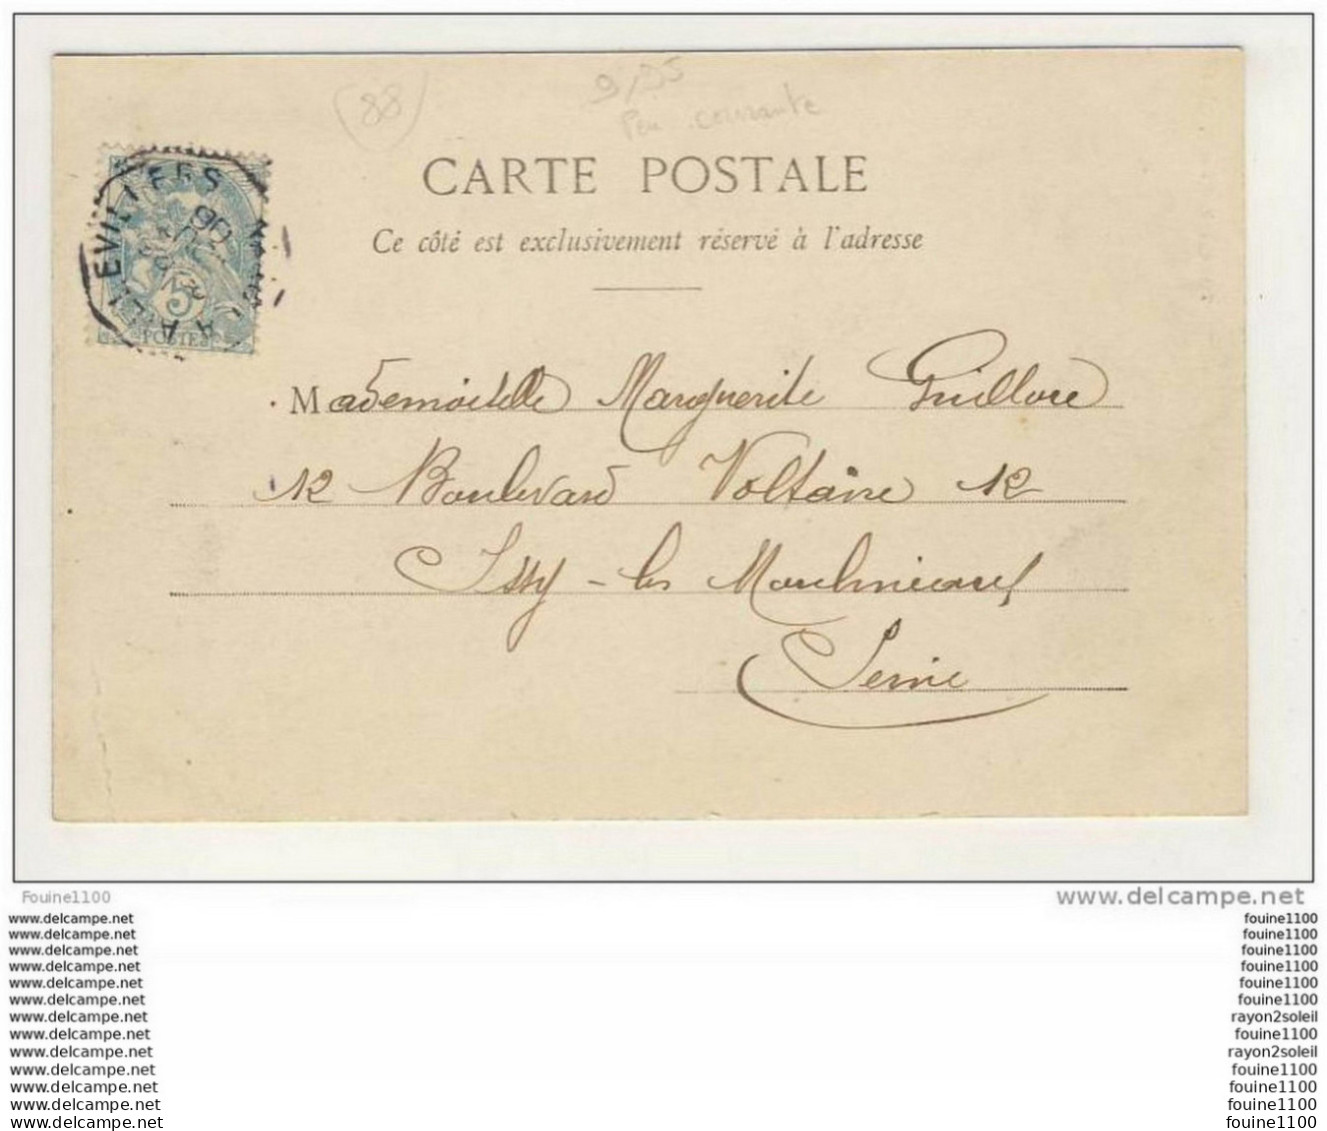 (88)
9,95
Peu courante
CARTE POSTALE
Ce côté est exclusivement réservé à l'adresse
5
POSTES
Mademoiselle Marguerite Guilloré
12 Boulevard Voltaire 12
Issy-les Moulineaux
Seine
Fouine1100
www.delcampe.net
www.delcampe.net
fouine1100
www.delcampe.net
fouine1100
www.delcampe.net
fouine1100
www.delcampe.net
fouine1100
www.delcampe.net
fouine1100
www.delcampe.net
fouine1100
www.delcampe.net
rayon2soleil
www.delcampe.net
fouine1100
www.delcampe.net
rayon2soleil
www.delcampe.net
fouine1100
www.delcampe.net
fouine1100
www.delcampe.net
fouine1100
www.delcampe.net
fouine1100